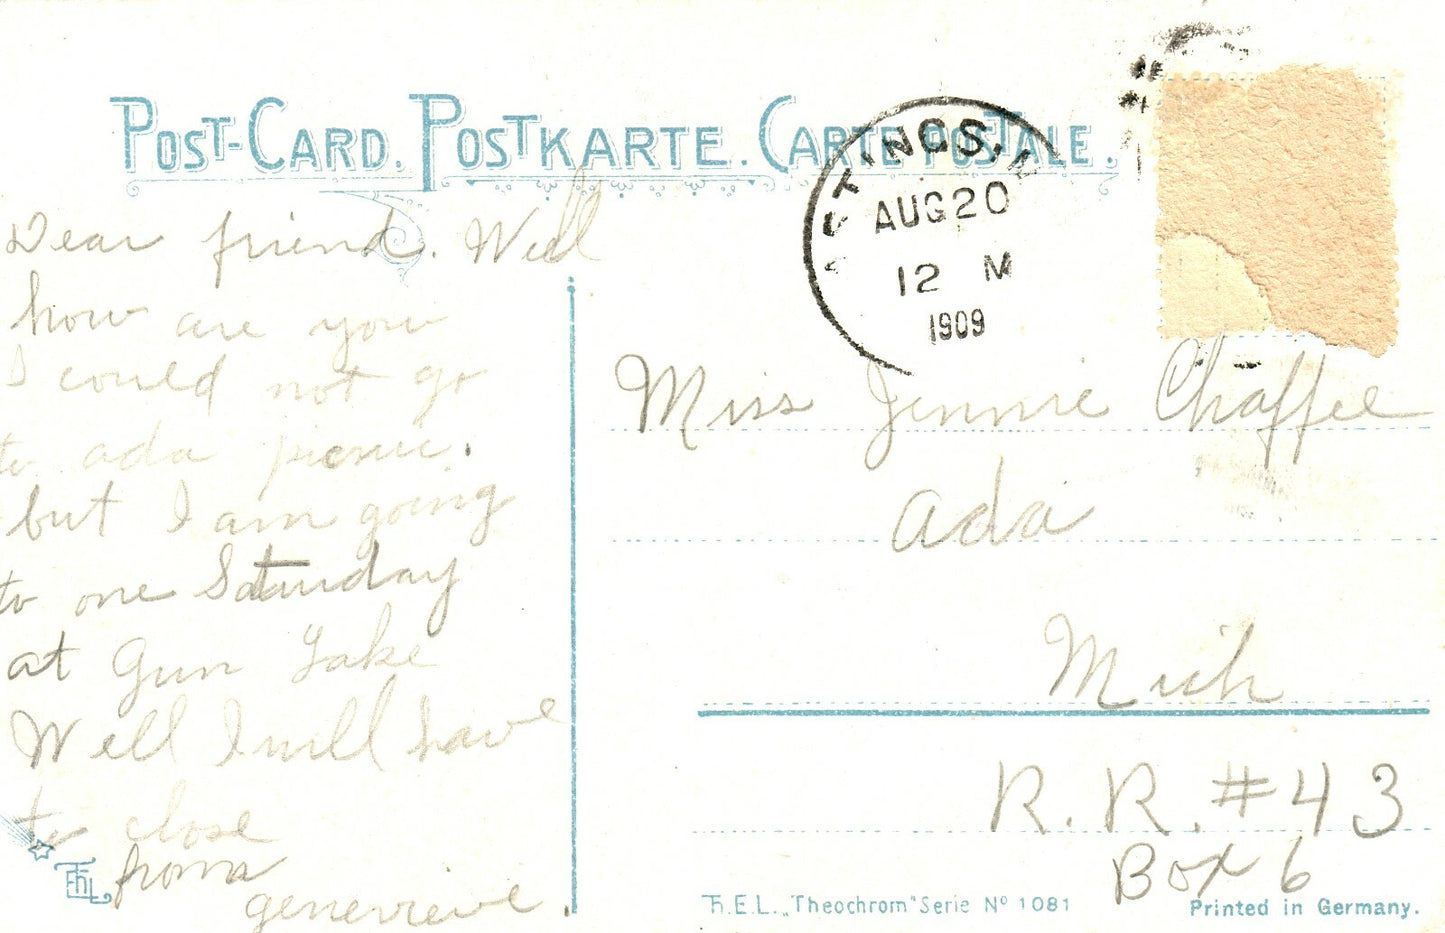 POST-CARD. POSTKARTE. CARTE POSTALE.
ASTINGS, M
AUG 20
12 M
1909
Dear friend. Well
how are you
I could not go
to ada picnic.
but I am going
to one Saturday
at Gun Lake
Well I will have
to close
from
genevieve.
Miss Jennie Chaffee
ada
Mich
R. R. #43
Box 6
Th.E.L. „Theochrom" Serie Nº 1081
Printed in Germany.